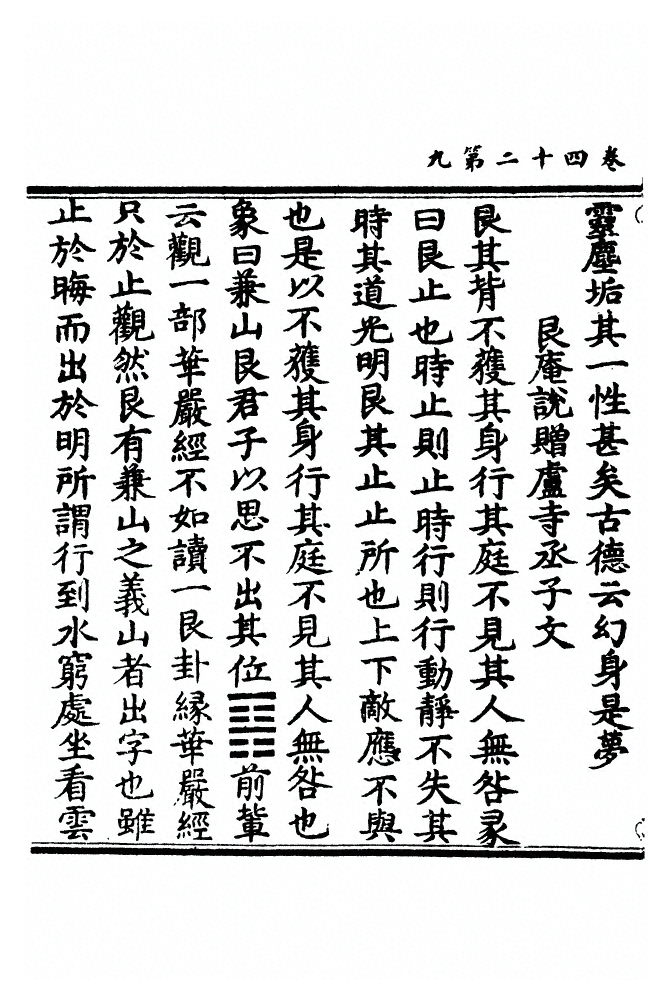 卷四十二第九
靈塵垢其一性甚矣古德云幻身是夢
艮庵說贈盧寺丞子文
艮其背不獲其身行其庭不見其人無咎彖
曰艮止也時止則止時行則行動靜不失其
時其道光明艮其止止所也上下敵應不與
也是以不獲其身行其庭不見其人無咎也
象曰兼山艮君子以思不出其位䷳前輩
云觀一部華嚴經不如讀一艮卦緣華嚴經
只於止觀然艮有兼山之義山者出字也雖
止於晦而出於明所謂行到水窮處坐看雲